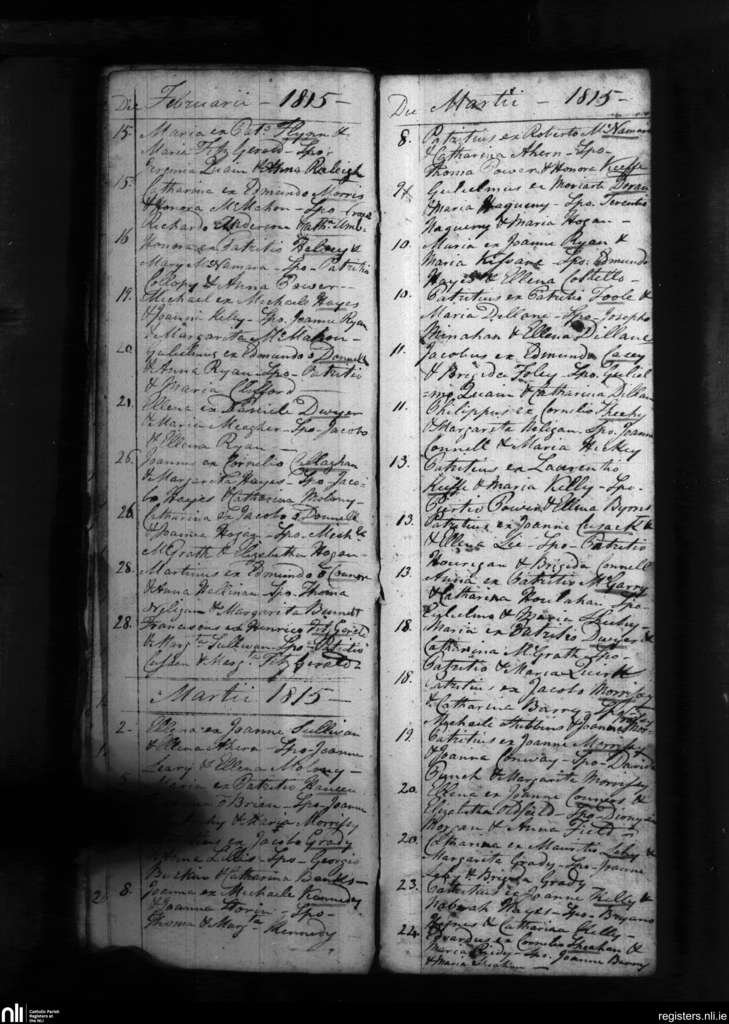 Die Februarii - 1815 -
15. Maria ex Patº Ryan &
Maria FitzGerald - Spo:
Quain & Anna Raleigh
15. Catharina ex Edmundo Morris
& Honora McMahon - Spo
Richardo Anderson
16 Honora ex Patritio &
Mary McNamara - Spo - Patritio
Collopy & Anna Power -
19. Michael ex Michaele Hayes
& Joanna Kelly - Spo. Joanne Ryan
& Margarita McMahon -
20. Gulielmus ex Edmundo o Donnell
& Anna Ryan - Spo - Patritio
& Maria Clifford -
21. Ellena ex Daniele Dwyer
& Maria Meagher - Spo - Jacobo
& Ellena Ryan -
25. Joannes ex Cornelio Callaghan
& Margarita Hayes - Spo - Jaco-
bo Hayes & Catharina Molony -
26. Catharina ex Jacobo o Donnell
& Joanna Hogan - Spo - Mich
McGrath & Elizabetha Hogan -
28. Martinus ex Edmundo o Connor
& Anna Hallinan - Spo. Thoma
Neligan & Margarita Bennett
28. Franciscus ex Henrico FitzGerald
& Marg Sullivan - Spo - Patritio
& Marg FitzGerald -
Martii 1815 -
2 - Ellena ex Joanne Sullivan
& Ellena Ahern - Spo - Joanne
Leary & Ellena Molony -
Maria ex Patritio
o Brien - Spo - Joanne
& Maria Morrissy
ex Jacobo Grady
- Spo - Georgio
& Catharina Banks -
8. Joanna ex Michaele Kennedy
& Joanna - Spo -
Thoma & Marg Kennedy
Die Martii - 1815 -
8. Patritius ex Roberto McNamara
& Catharina Ahern - Spo -
Thoma Power & Honora Keeffe
9. Gulielmus ex Moriarti Doran
& Maria - Spo. Terentio
& Maria Hogan -
10. Maria ex Joanne Ryan &
Maria Kissane - Spo: Edmundo
Hayes & Ellena Costello -
10. Patritius ex Patritio Toole &
Maria Dillane - Spo - Josepho
Minahan & Ellena Dillane
11. Jacobus ex Edmundo Casey
& Brigida Foley - Spo. Guliel
mo Quain & Catharina Dillane
11. Philippus ex Cornelio Sheehy
& Margarita Neligan - Spo. Joanne
Connell & Maria Hickey
13. Patritius ex Laurentio
Keeffe & Maria Kelly - Spo -
Power & Ellena Byrns
13. Patritius ex Joanne Cusack &
& Ellena Lee - Spo - Patritio
Hourigan & Brigida Connell
13. Maria ex Patritio McGarry
& Catharina Houlahan Spo -
Gulielmo & Maria Sheehy -
18. Maria ex Patritio Dwyer &
Catharina McGrath Spo -
Patritio & Maria Quirk
18. Patritius ex Jacobo Morrissy
& Catharina Barry - Spo -
Michaele Stubbins & Joanna
19. Patritius ex Joanne Morrissy
& Joanna Conway - Spo - Davide
& Margarita Morrissy
20. Ellena ex Joanne Connors &
Elizabetha Oldfield - Spo - Dionysio
Morgan & Anna Field -
20. Catharina ex Mauritio Leby &
Margarita Grady - Spo - Joanne
Leby & Brigida Grady
23. Patritius ex Joanne Kelly &
Noborah Hayes - Spo - Bryano
& Catharina Kelly -
24. ex Cornelio Sheahan &
Maria - Spo: Joanne Barry
& Maria Sheahan -
nli
Catholic Parish
Registers at
the NLI
registers.nli.ie